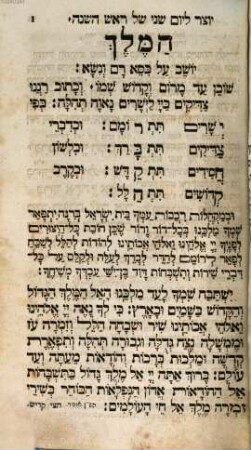 יוצר ליום שני של ראש השנה,
המלך
יושב על כסא רם ונשא:
שוכן עד מרום וקדוש שמו, וכתוב רננו
צדיקים ביי לישרים נאוה תהלה: בפי
ישרים תתרומם: ובדברי
צדיקים תתברך: ובלשון
חסידים תתקדש: ובקרב
קדושים תתהלל:
ובמקהלות רבבות עמך בית ישראל ברנה יתפאר
שמך מלכנו בכל דור ודור שכן חובת כל היצורים
לפניך יי אלהינו ואלהי אבותינו להודות להלל לשבח
לפאר לרומם להדר לברך לעלה ולקלס על כל
דברי שירות ותשבחות דוד בן ישי עבדך משיחך:
ישתבח שמך לעד מלכנו האל המלך הגדול
והקדוש בשמים ובארץ: כי לך נאה יי אלהינו
ואלהי אבותינו שיר ושבחה הלל וזמרה עז
וממשלה נצח גדלה וגבורה תהלה ותפארת
קדשה ומלכות ברכות והודאות מעתה ועד
עולם: ברוך אתה יי אל מלך גדול בתשבחות
אל ההודאות אדון הנפלאות הבוחר בשירי
זמרה מלך אל חי העולמים: חצי קדיש,